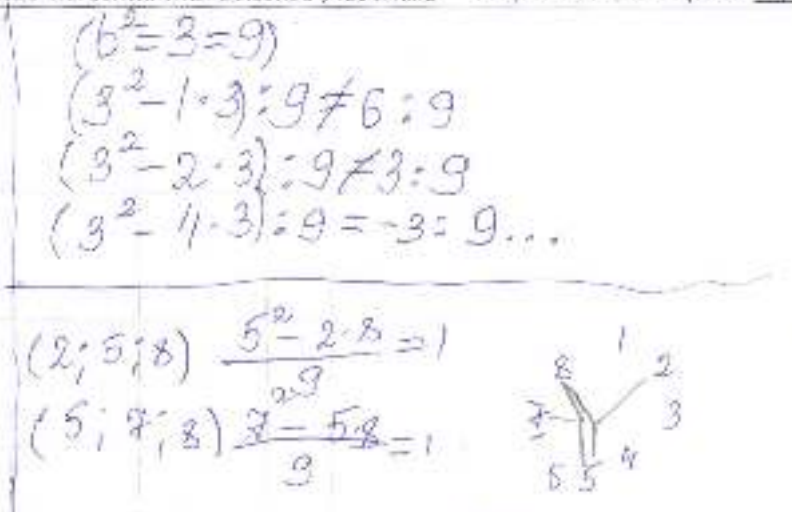 (b² = 3 = 9)
(3² - 1·3) : 9 ≠ 6 : 9
(3² - 2·3) : 9 ≠ 3 : 9
(3² - 4·3) : 9 = -3 : 9...
(2; 5; 8) \frac{5² - 2·8}{9} = 1
(5; 7; 8) \frac{7² - 5·8}{9} = 1
1
8 2
7 3
6 5 4